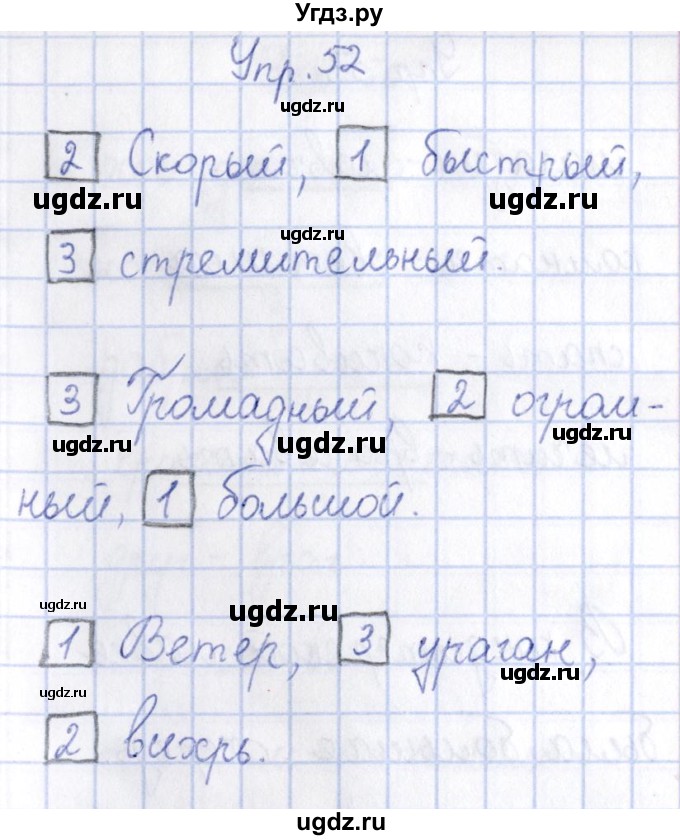 Угдз.ру
Упр. 52
ugdz.ru
2 Скорый, 1 быстрый,
ugdz.ru ugdz.ru
ugdz.ru
3 стремительный.
3 Громадный, 2 огром-
ugdz.ru ugdz.ru ugdz.ru
ный, 1 большой.
ugdz.ru ugdz.ru
1 Ветер, 3 ураган,
ugdz.ru
ugdz.ru
2 вихрь.
ugdz.ru